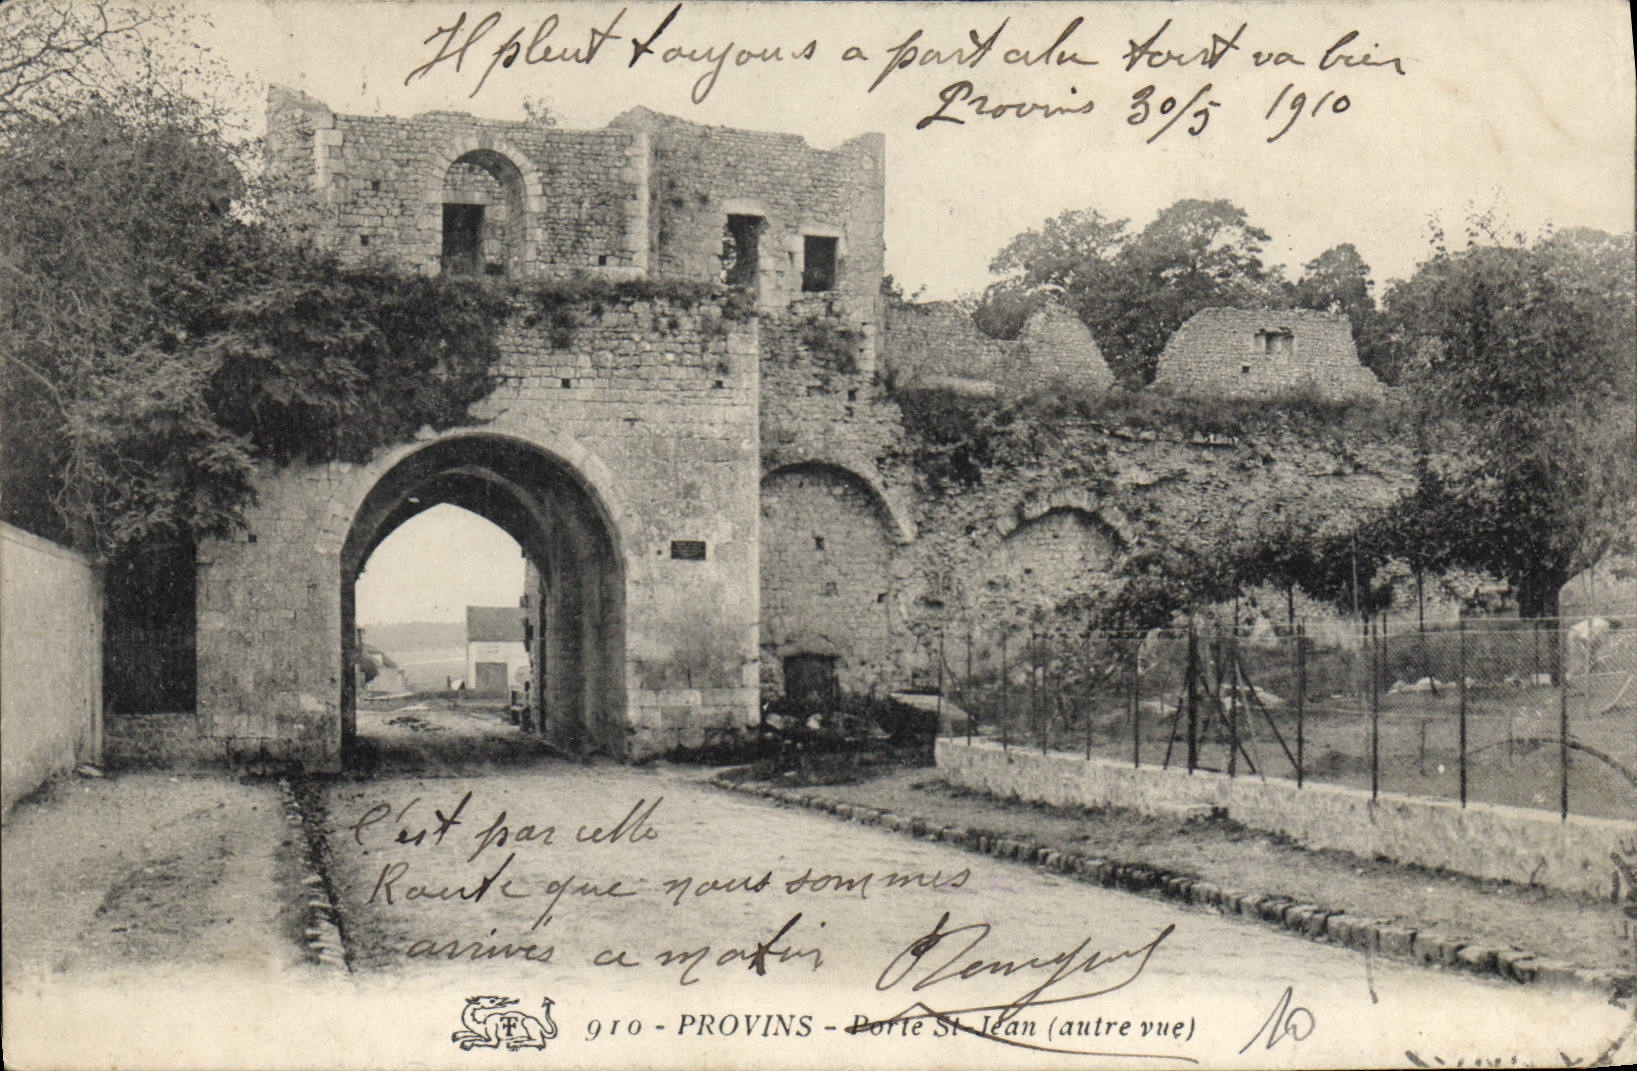 Il pleut toujours a part cela tout va bien
Provins 30/5 1910
C'est par cette
Route que nous sommes
arrivés ce matin
910 - PROVINS - Porte St-Jean (autre vue)
10